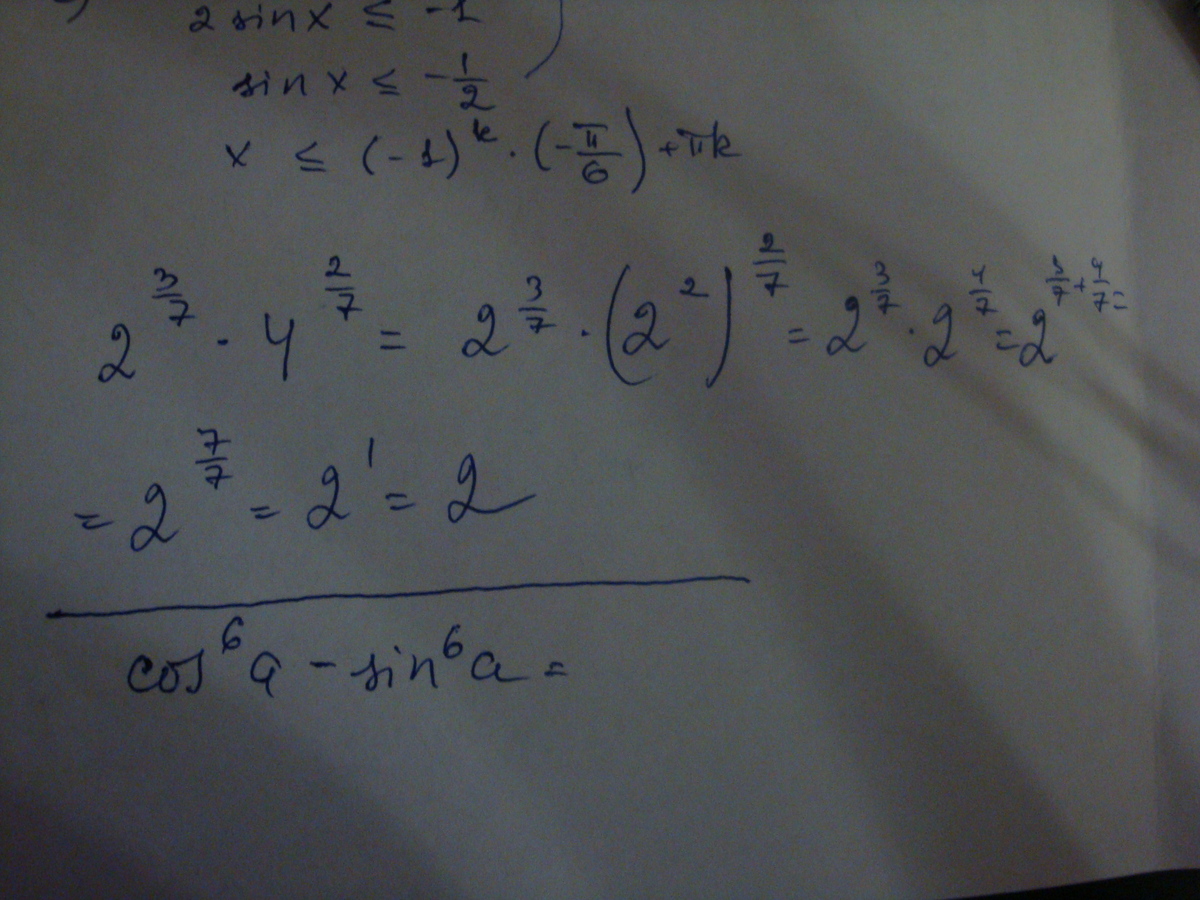 2 sin x ≤ -1
sin x ≤ -1/2
x ≤ (-1)^k · (-π/6) + πk
2^(3/7) · 4^(2/7) = 2^(3/7) · (2^2)^(2/7) = 2^(3/7) · 2^(4/7) = 2^(3/7 + 4/7) =
= 2^(7/7) = 2^1 = 2
cos^6 a - sin^6 a =